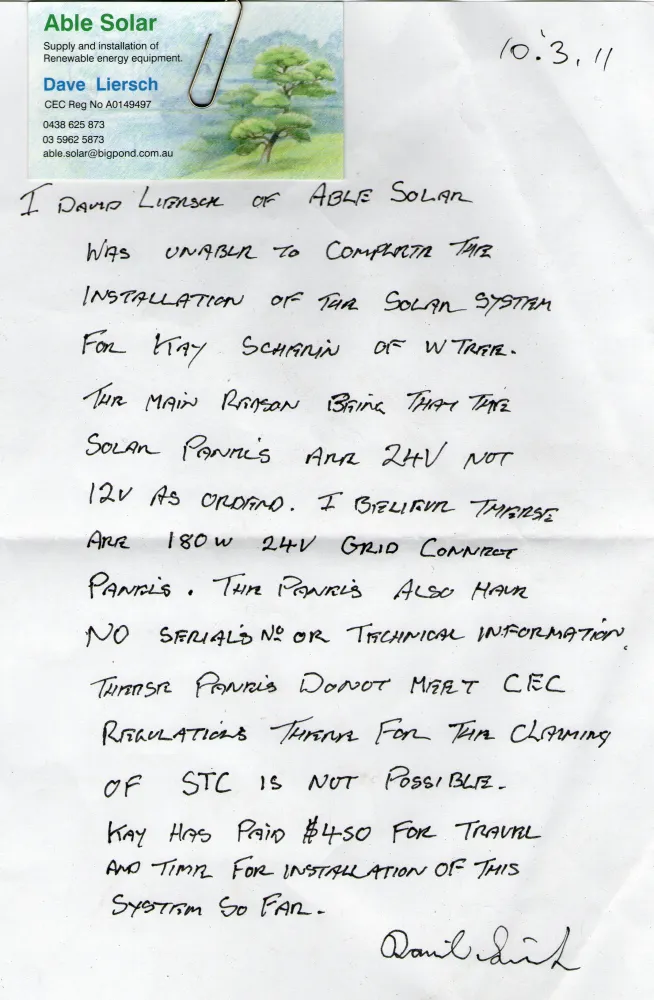 Able Solar
Supply and installation of
Renewable energy equipment.
Dave Liersch
CEC Reg No A0149497
0438 625 873
03 5962 5873
able.solar@bigpond.com.au
10.3.11
I DAVID LIERSCH OF ABLE SOLAR
WAS UNABLE TO COMPLETE THE
INSTALLATION OF THE SOLAR SYSTEM
FOR KAY SCHERIN OF W TREE.
THE MAIN REASON BEING THAT THE
SOLAR PANELS ARE 24V NOT
12V AS ORDERD. I BELIEVE THERSE
ARE 180W 24V GRID CONNECT
PANELS. THE PANELS ALSO HAVE
NO SERIAL'S No OR TECHNICAL INFORMATION.
THERSE PANELS DONOT MEET CEC
REGULATIONS THERE FOR THE CLAIMING
OF STC IS NOT POSSIBLE.
KAY HAS PAID $450 FOR TRAVEL
AND TIME FOR INSTALLATION OF THIS
SYSTEM SO FAR.